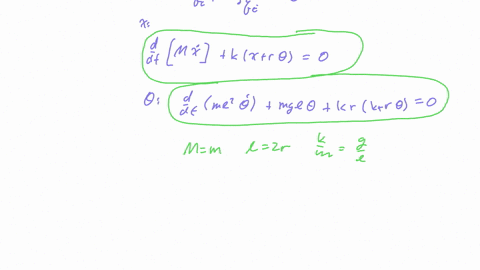 x:
d/dt [Mẋ] + k(x+rθ) = 0
θ: d/dt (ml² θ̇) + mglθ + kr(x+rθ) = 0
M=m l=2r k/m = g/l